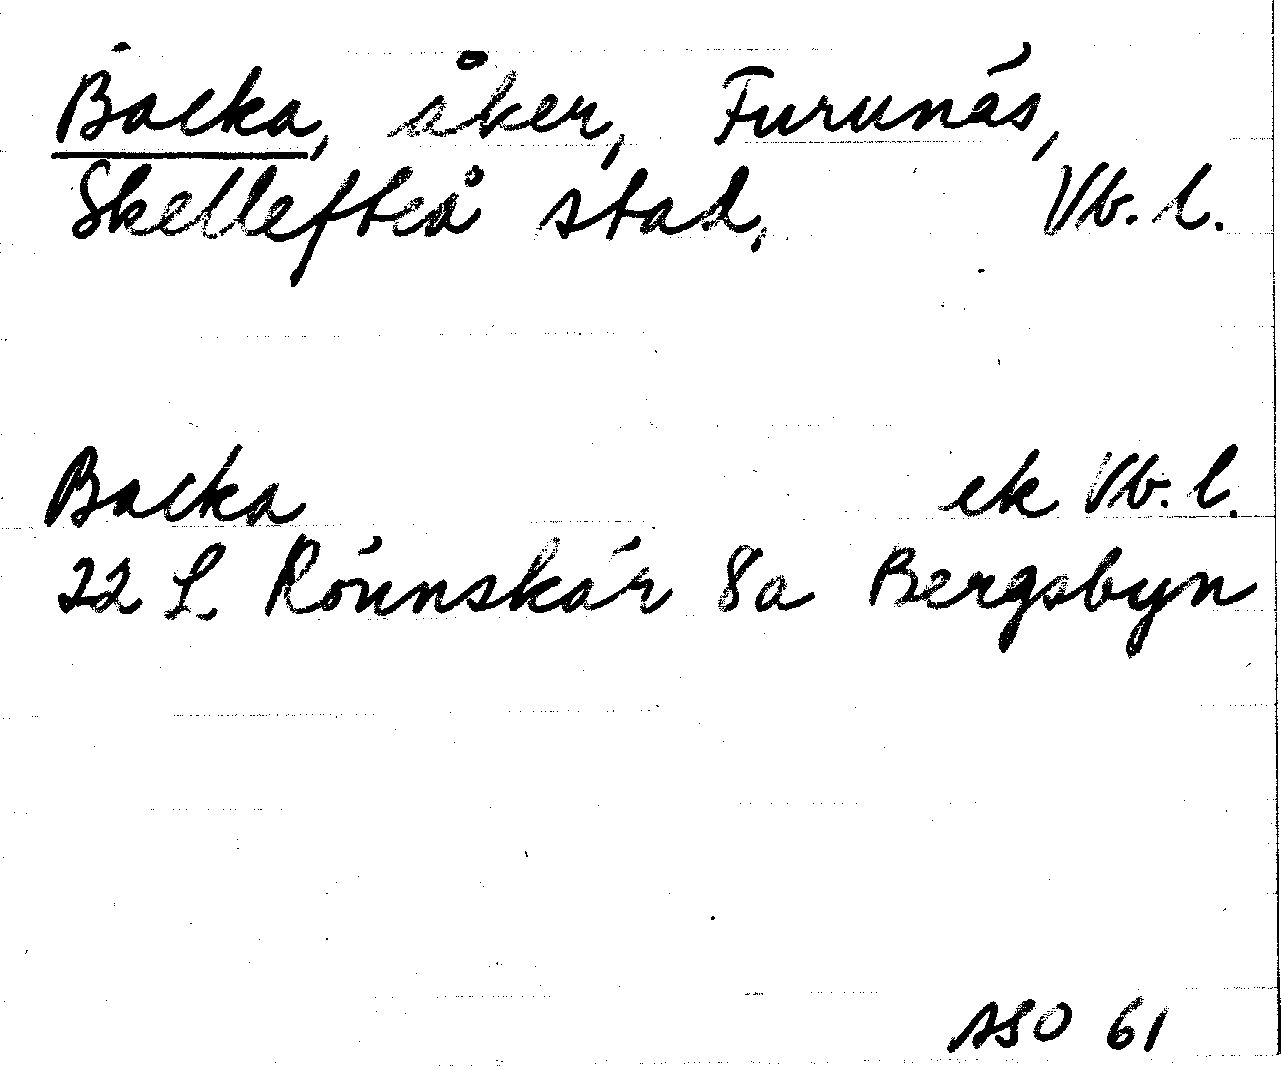 Backa, åker, Furunäs,
Skellefteå stad, Vb. l.
Backa ek Vb. l.
22 L Rönnskär 8a Bergsbyn
ASO 61